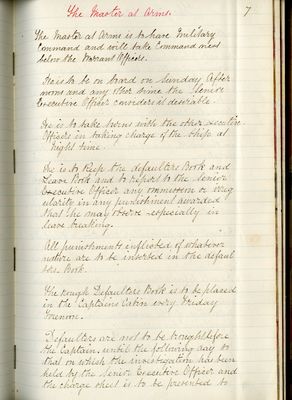 The Master at Arms.
7
The Master at Arms is to have military
Command and will take Command next
below the Warrant Officers.
He is to be on board on Sunday After
noons and any other time the Senior
Executive Officer considers it desirable.
He is to take turns with the other executive
Officers in taking charge of the Ship at
night time.
He is to keep the defaulters Book and
Leave Book and to report to the Senior
Executive Officer any ommission or irreg
ularity in any punishment awarded
that he may observe especially in
leave breaking.
All punishments inflicted of whatever
nature are to be inserted in the defaul
ters Book.
The rough Defaulters Book is to be placed
in the Captains Cabin every Friday
Forenoon.
Defaulters are not to be brought before
the Captain until the following day to
that on which the investigation has been
held by the Senior Executive Officer and
the charge sheet is to be presented to